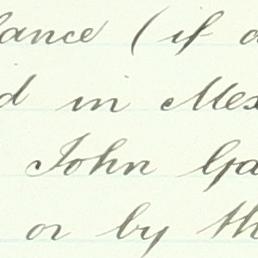 lance (if a
d in Mex
John Ga
or by th